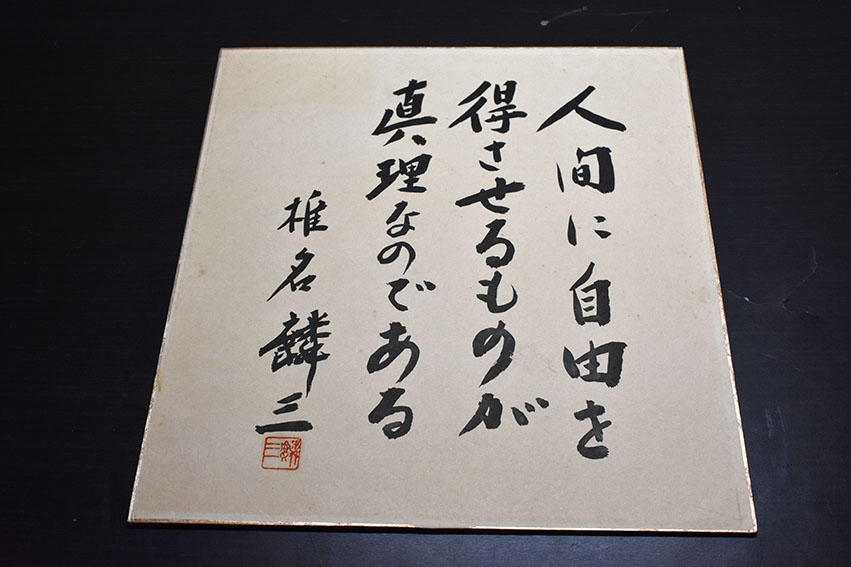 人間に自由を
得させるものが
真理なのである
椎名麟三
麟三